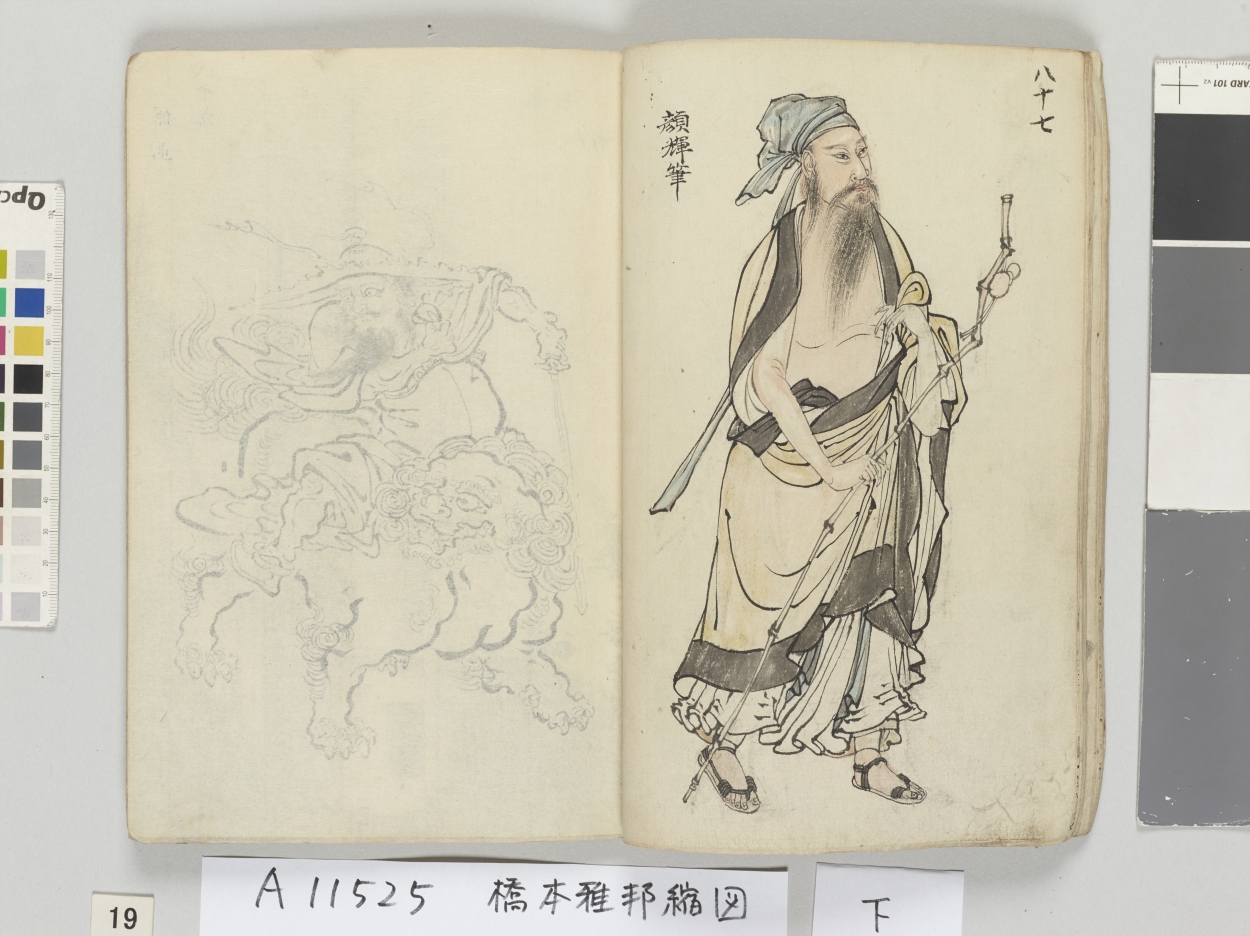 八十七
顔輝筆
A 11525 橋本雅邦縮図
下
19